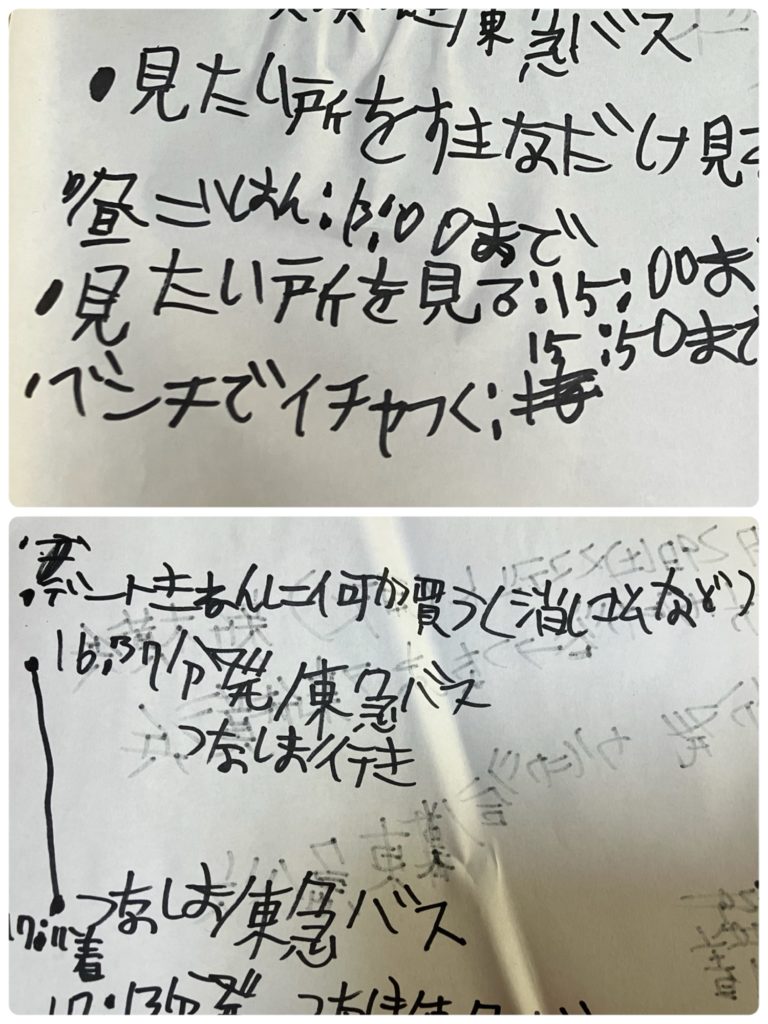 東急バス
・見たい所をすきなだけ見
昼ごはん:13:00まで
・見たい所を見る:15:00ま
15:50まで
・ベンチでイチャつく:
デートきねんに何か買う(消しゴムなど)
16:37分発/東急バス
つなしま行き
つなしま/東急バス
着
17:13分発